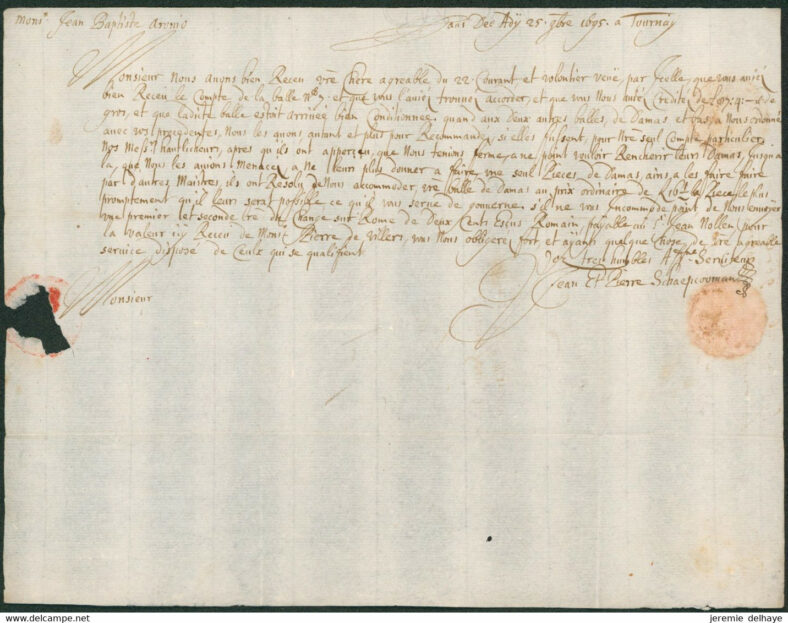 Mons.r Jean Baptiste
Laus Deo Ady 25. 9bre 1695. a Tournay
Monsieur Nous avons bien Receu vre Chere agreable du 22. Courant et volontier veü, par Icelle, que vous aviez
bien Receu le Compte de la balle No 7. et que vous l'aviez trouvez accorder, et que vous Nous avéz Crédité de
gros, et que ladite balle estoit arrivée bien Conditionnée; quand aux deux autres balles de Damas et
avec vos precedentes, Nous les avons autant et plus pour Recommandé, si elles fussent, pour Nre seul Compte particulier,
Nos Mess.rs hautlicheurs, apres qu'ils ont apperceu, que Nous tenions ferme, a ne point vouloir Rencherir leurs Damas, Jusqu'a
la, que Nous les avions Menacez a ne leur plus donner a faire une seul Pieces de Damas, ains, a les faire faire
par d'autres Maitres, ils ont Resolu de Nous accommoder, vre balle de Damas au prix ordinaire de la Piece, le plus
promptement qu'il leurs serat possible ce qu'il vous serve de gouverne. s'il ne vous Incommode point de Nous envoyer
une premier et seconde Lre de Change sur Rome de Deux Cents Escus Romain payable au S.r Jean Nollen pour
la valeur icy Receu de Mons.r Pierre de villers, vous Nous obligerez fort, et ayants quelque Chose, de vre agreable
service disposé de Ceulx qui se qualifient
Vos tres humbles Serviteurs
Jean Et Pierre Schaepcooman
Monsieur
jeremie delhaye